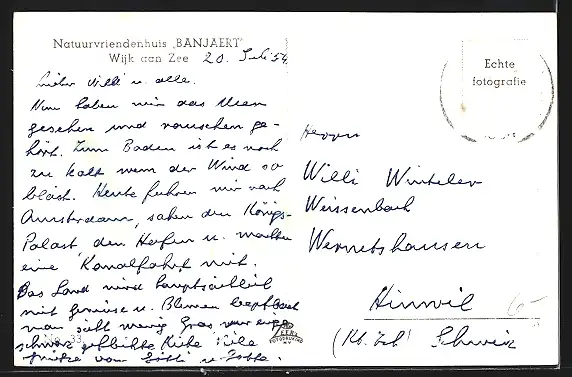 Natuurvriendenhuis „BANJAERT"
Wijk aan Zee 20. Juli 54
Lieber Willi u. alle.
Nun haben wir das Meer
gesehen und rauschen ge-
hört. Zum Baden ist es noch
zu kalt wenn der Wind so
bläst. Heute fuhren wir nach
Amsterdam, sahen den Königs-
Palast den Hafen u. machten
eine Kanalfahrt mit.
Das Land wird hauptsächlich
mit Gemüse u. Blumen bepflanzt
man sieht wenig Gras nur einige
schwarz gefleckte Kühe Viele
Grüsse von
Echte
fotografie
Herrn
Willi Winteler
Weissenbach
Wernetshausen
Hinwil
(Kt. Zch) Schweiz
6-